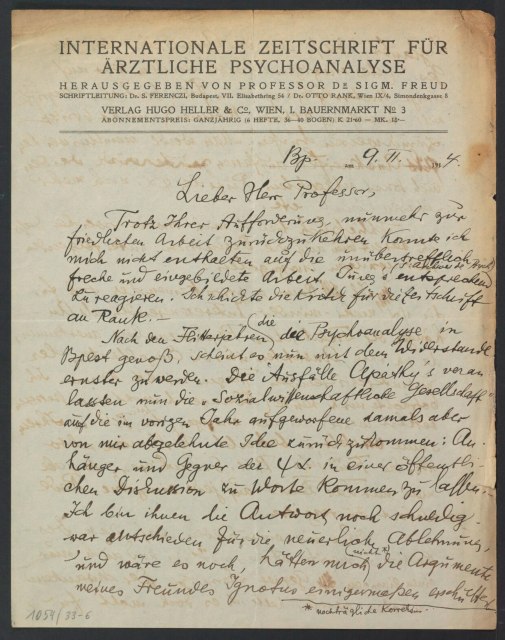 INTERNATIONALE ZEITSCHRIFT FÜR
ÄRZTLICHE PSYCHOANALYSE
HERAUSGEGEBEN VON PROFESSOR Dr SIGM. FREUD
SCHRIFTLEITUNG: Dr. S. FERENCZI, Budapest, VII. Elisabethring 54 / Dr. OTTO RANK, Wien IX/4, Simondenkgasse 8
VERLAG HUGO HELLER & Co, WIEN, I. BAUERNMARKT No 3
ABONNEMENTSPREIS: GANZJÄHRIG (6 HEFTE, 36—40 BOGEN) K 21·60 = MK. 18·—
Bp. am 9. II. 1914.
Lieber Herr Professor,
Trotz Ihrer Aufforderung, nunmehr zur
friedlichen Arbeit zurückzukehren konnte ich
mich nicht enthalten auf die unübertrefflich
freche und eingebildete Arbeit entsprechend
zu reagieren. Ich schickte die Kritik für die Zeitschrift
an Rank. —
Nach den Flitterjahren, die die Psychoanalyse in
Bpest genoß, scheint es nun mit dem Widerstande
ernster zu werden. Die Ausfälle Apáthy's veran
lassten nun die „Sozialwissenschaftliche Gesellschaft"
auf die im vorigen Jahr aufgeworfene damals aber
von mir abgelehnte Idee zurückzukommen: An-
hänger und Gegner der ΨΑ. in einer öffentli-
chen Diskussion zu Worte kommen zu lassen. —
Ich bin ihnen die Antwort noch schuldig —
war entschieden für die neuerliche Ablehnung,
und wäre es noch, hätten mich nicht* die Argumente
meines Freundes Ignotus einigermaßen erschüttert
* nachträgliche Korrektur
1054/33-6